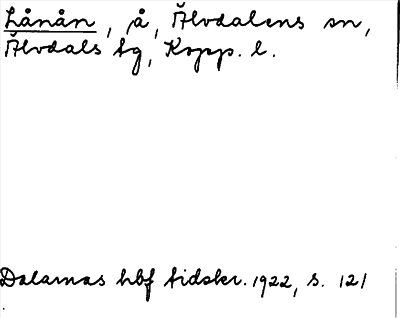 Lånån, å, Älvdalens sn,
Älvdals tg, Kopp. l.
Dalarnas hbf tidskr. 1922, s. 121